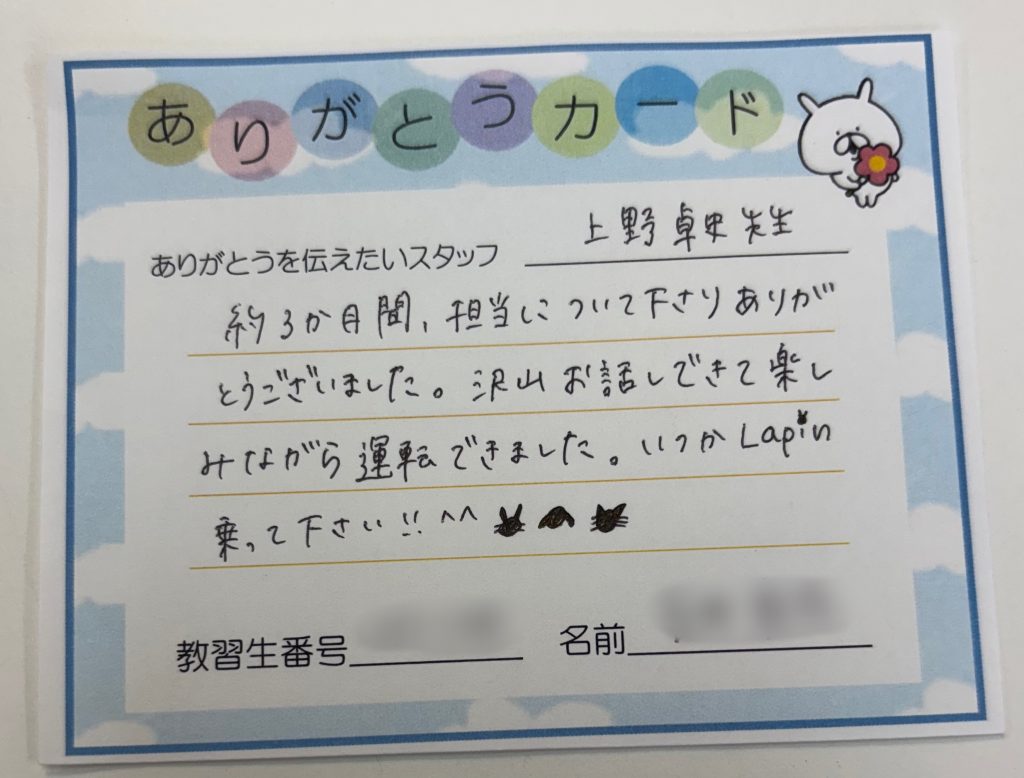 ありがとうカード
ありがとうを伝えたいスタッフ 上野卓史先生
約3か月間、担当について下さりありが
とうございました。沢山お話しできて楽し
みながら運転できました。いつかLapin
乗って下さい!! ^^
教習生番号 名前